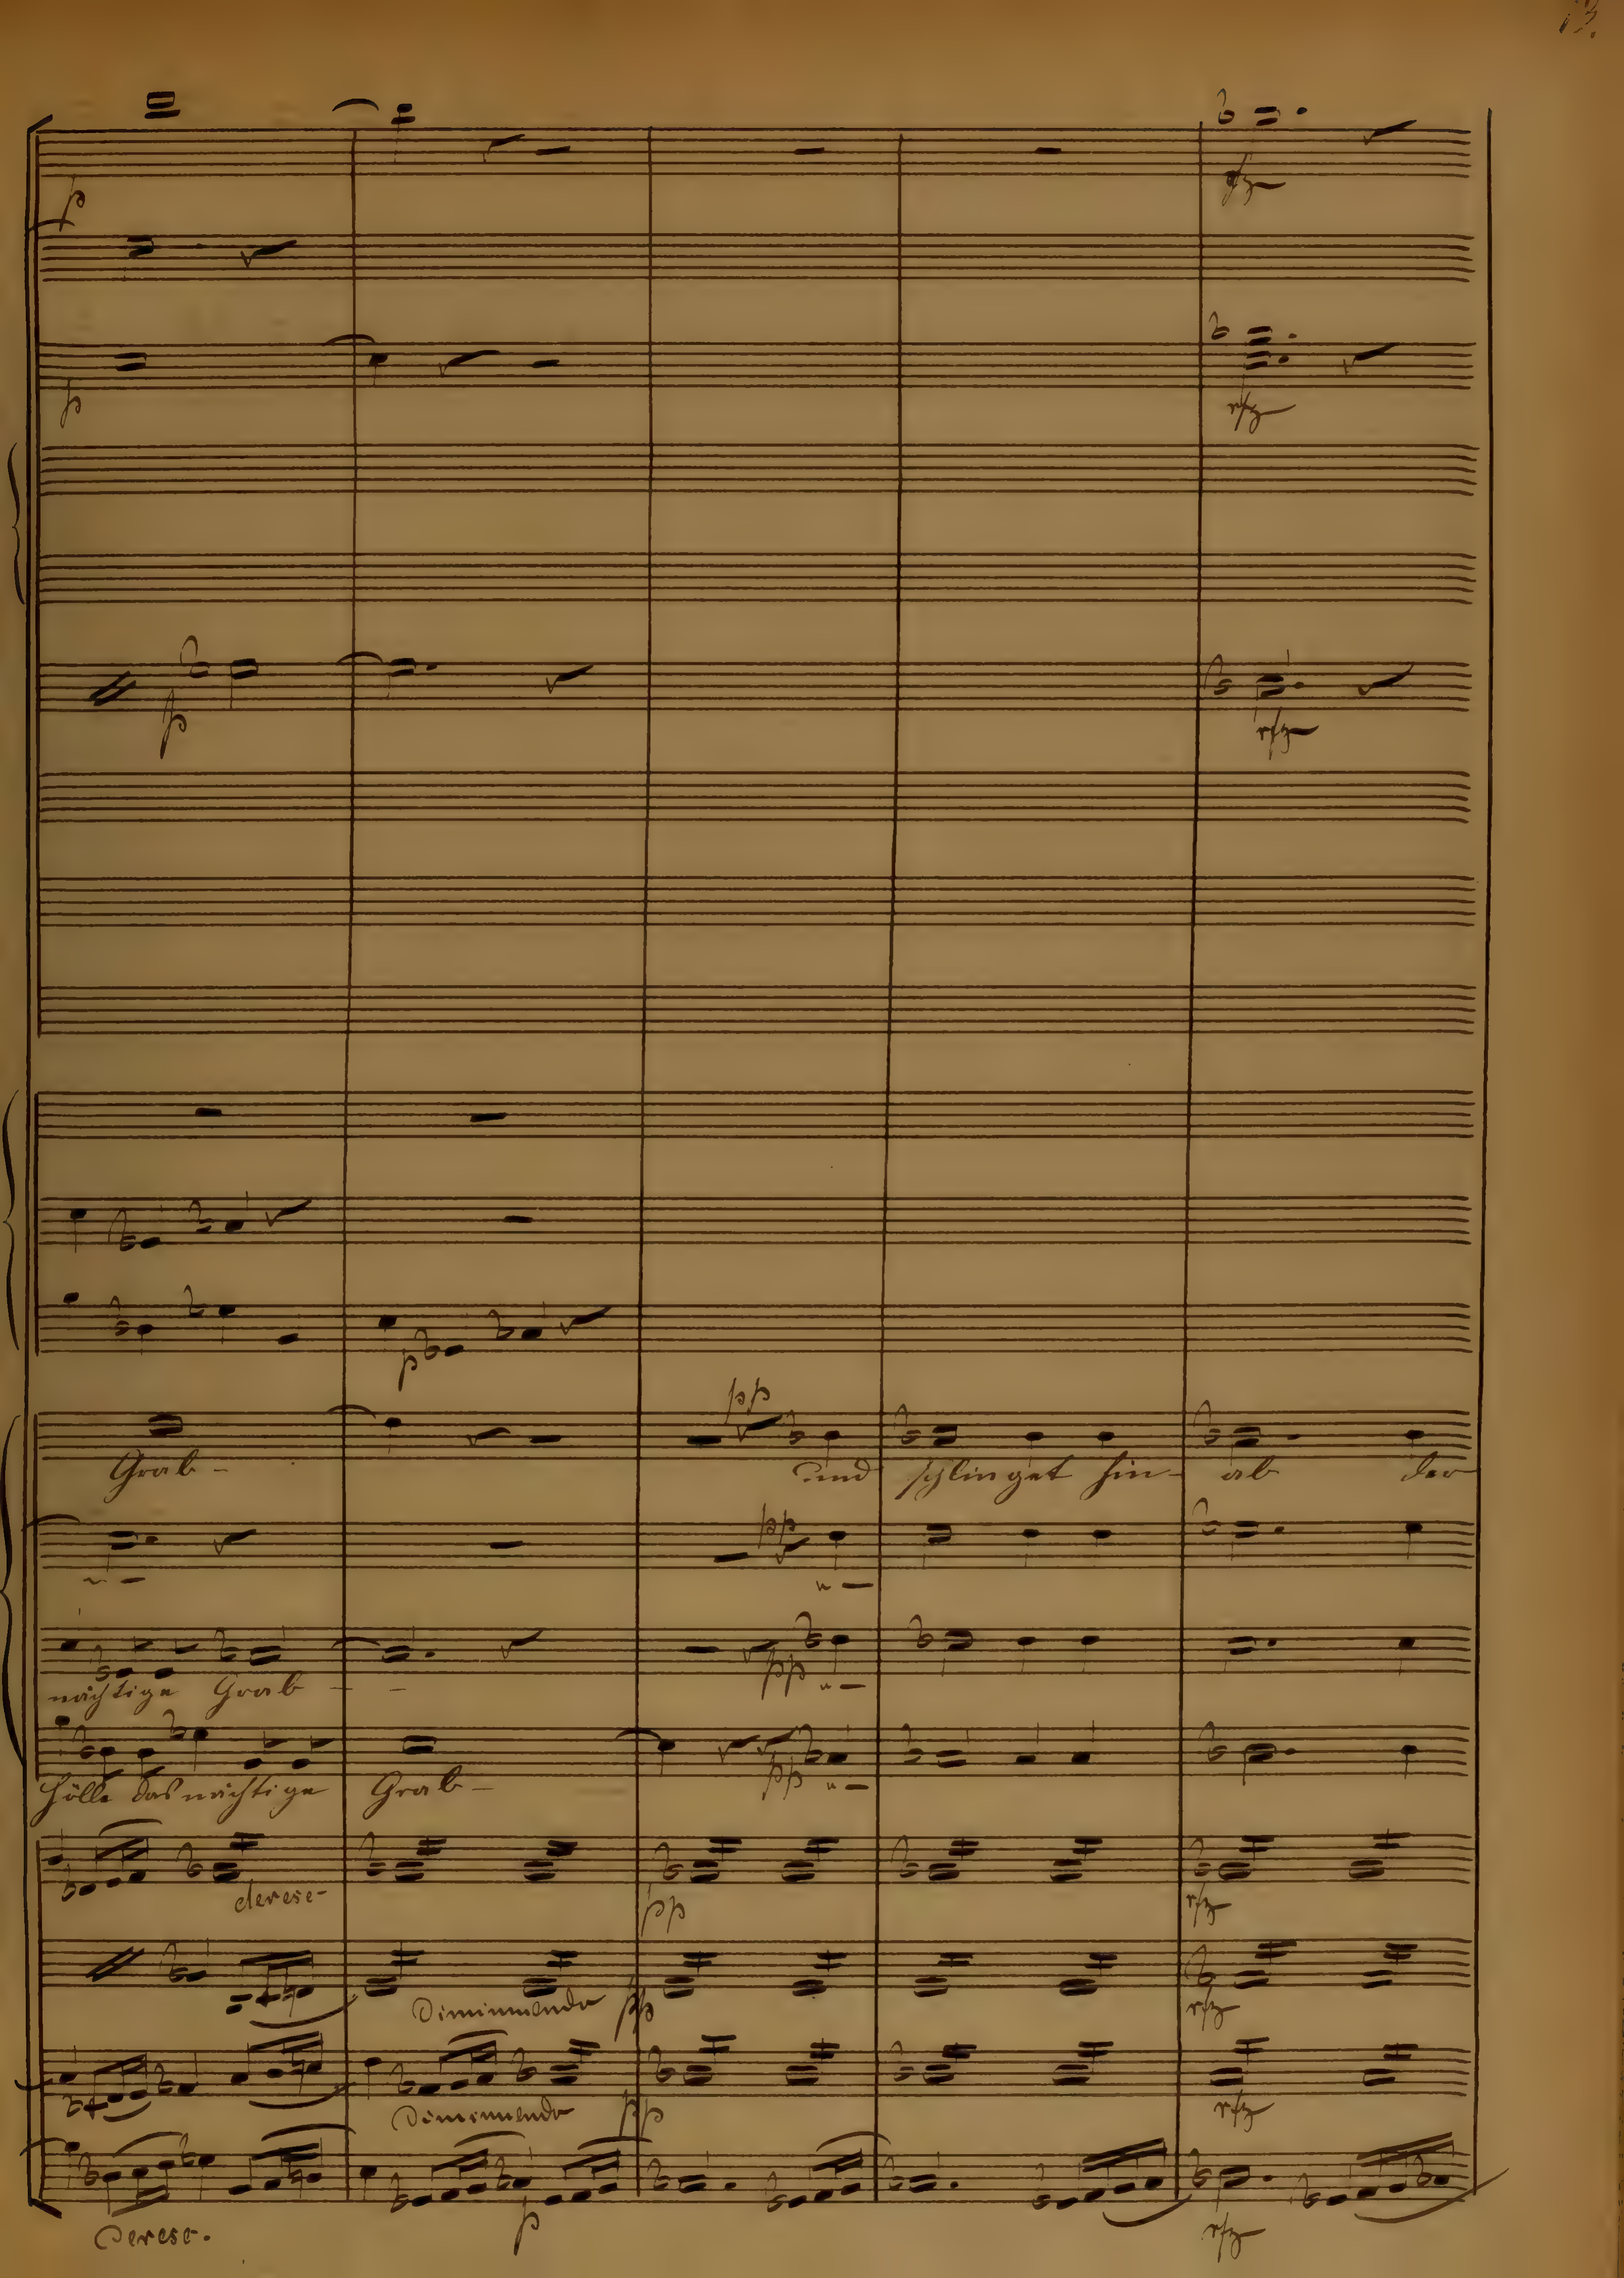 13.
p
rfz
p
rfz
p
rfz
p
pp
Grab - und schlinget hin - ab der
pp
nächtige Grab - -
pp
pp
Hölle das nächtige Grab -
decresc-
pp
rfz
Diminuendo pp
rfz
Diminuendo pp
rfz
Decresc.
p
rfz